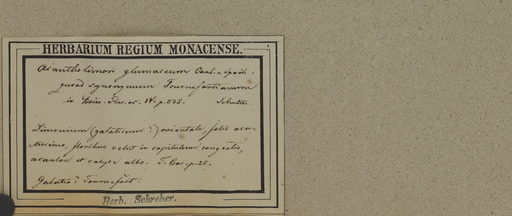 HERBARIUM REGIUM MONACENSE.
Acantholimon glumaceum Jaub. et Spach.
quoad synonymum Tournefortianum
in Boiss. Flor. or. IV. p. 835.
Limonium (galaticum?) orientale, folio acu-
tissimo, floribus velut in capitulum congestis,
et calyce albo. T. Cor. p. 25.
Galatia? Tournefort.
Herb. Schreber.